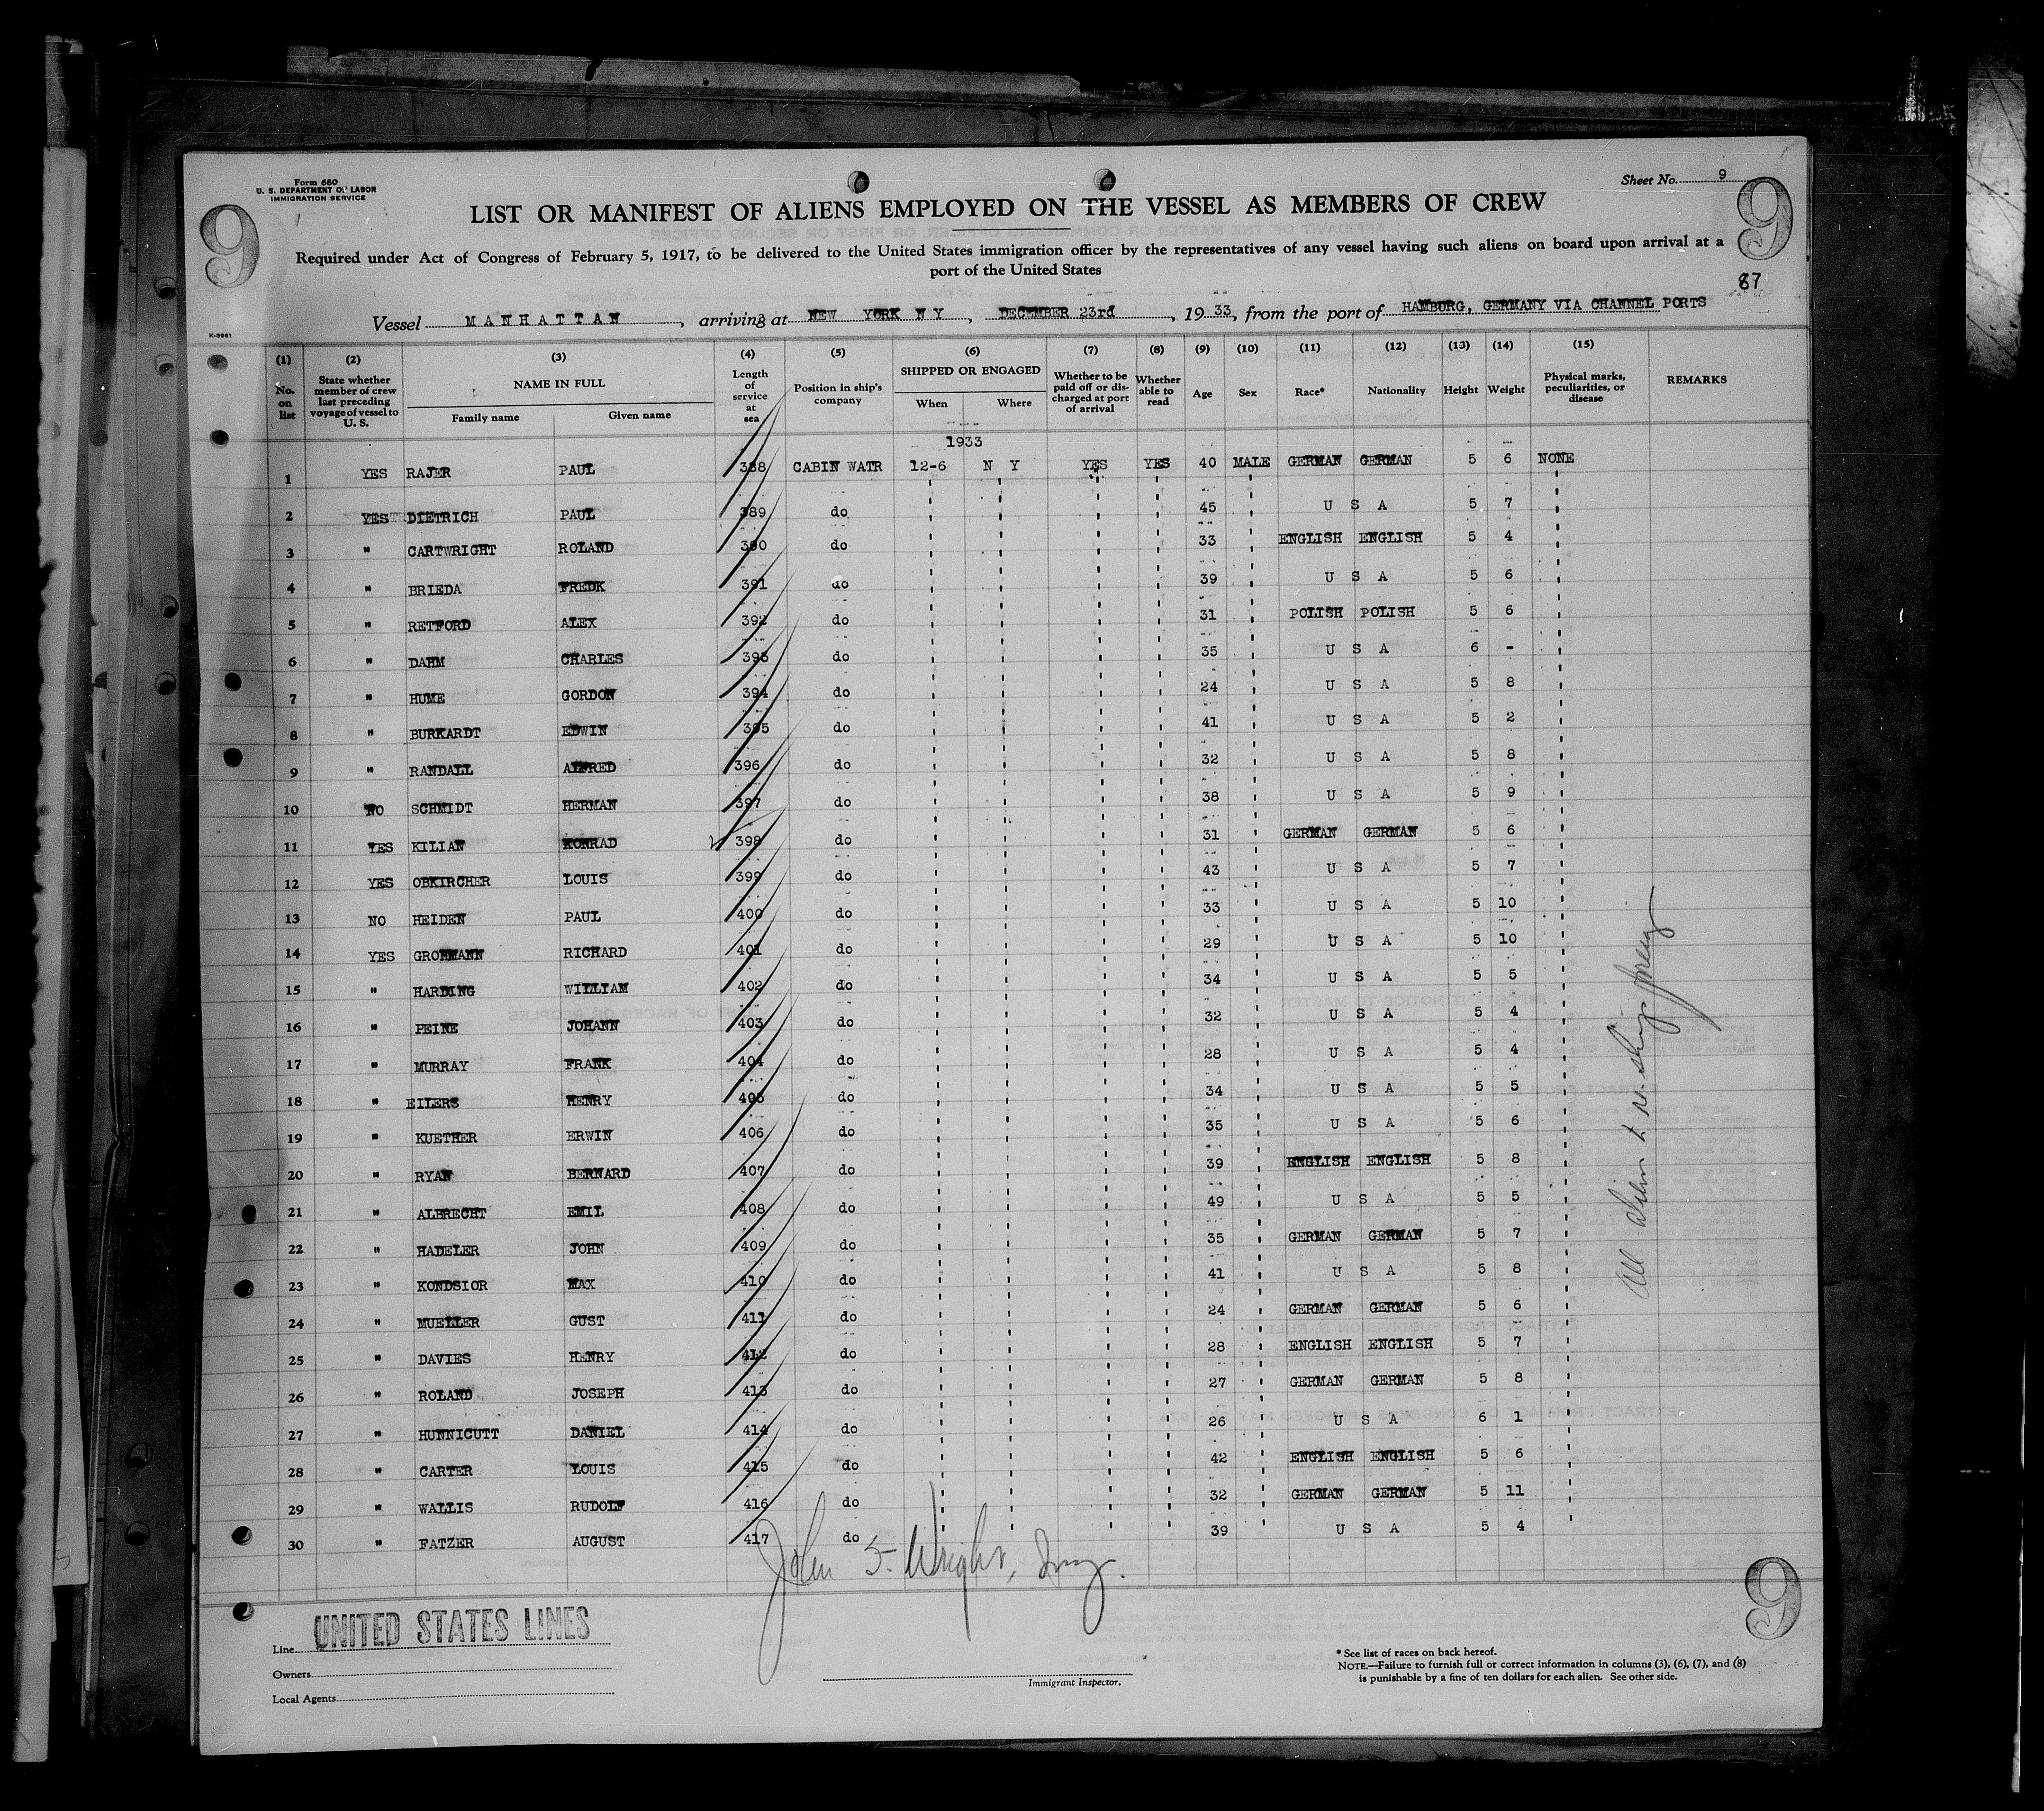 Form 680
U. S. DEPARTMENT OF LABOR
IMMIGRATION SERVICE
Sheet No. 9
9 9
LIST OR MANIFEST OF ALIENS EMPLOYED ON THE VESSEL AS MEMBERS OF CREW
Required under Act of Congress of February 5, 1917, to be delivered to the United States immigration officer by the representatives of any vessel having such aliens on board upon arrival at a
port of the United States
87
Vessel MANHATTAN, arriving at NEW YORK N Y, DECEMBER 23rd, 1933, from the port of HAMBURG, GERMANY VIA CHANNEL PORTS
K-9961
(1) (2) (3) (4) (5) (6) (7) (8) (9) (10) (11) (12) (13) (14) (15)
No. on list State whether member of crew last preceding voyage of vessel to U. S. NAME IN FULL Family name Given name Length of service at sea Position in ship's company SHIPPED OR ENGAGED When Where Whether to be paid off or discharged at port of arrival Whether able to read Age Sex Race* Nationality Height Weight Physical marks, peculiarities, or disease REMARKS
1933
1 YES RAJER PAUL 388 CABIN WATR 12-6 N Y YES YES 40 MALE GERMAN GERMAN 5 6 NONE
2 YES DIETRICH PAUL 389 do 45 U S A 5 7
3 " CARTWRIGHT ROLAND 390 do 33 ENGLISH ENGLISH 5 4
4 " BRIEDA FREDK 391 do 39 U S A 5 6
5 " RETFORD ALEX 392 do 31 POLISH POLISH 5 6
6 " DAHM CHARLES 393 do 35 U S A 6 -
7 " HUME GORDON 394 do 24 U S A 5 8
8 " BURKARDT EDWIN 395 do 41 U S A 5 2
9 " RANDALL ALFRED 396 do 32 U S A 5 8
10 NO SCHMIDT HERMAN 397 do 38 U S A 5 9
11 YES KILIAN KONRAD 398 do 31 GERMAN GERMAN 5 6
12 YES OBKIRCHER LOUIS 399 do 43 U S A 5 7
13 NO HEIDEN PAUL 400 do 33 U S A 5 10
14 YES GROHMANN RICHARD 401 do 29 U S A 5 10
15 " HARDING WILLIAM 402 do 34 U S A 5 5
16 " PEINE JOHANN 403 do 32 U S A 5 4
17 " MURRAY FRANK 404 do 28 U S A 5 4
18 " EILERS HENRY 405 do 34 U S A 5 5
19 " KUETHER ERWIN 406 do 35 U S A 5 6
20 " RYAN BERNARD 407 do 39 ENGLISH ENGLISH 5 8
21 " ALBRECHT EMIL 408 do 49 U S A 5 5
22 " HADELER JOHN 409 do 35 GERMAN GERMAN 5 7
23 " KONDSIOR MAX 410 do 41 U S A 5 8
24 " MUELLER GUST 411 do 24 GERMAN GERMAN 5 6
25 " DAVIES HENRY 412 do 28 ENGLISH ENGLISH 5 7
26 " ROLAND JOSEPH 413 do 27 GERMAN GERMAN 5 8
27 " HUNNICUTT DANIEL 414 do 26 U S A 6 1
28 " CARTER LOUIS 415 do 42 ENGLISH ENGLISH 5 6
29 " WALLIS RUDOLF 416 do 32 GERMAN GERMAN 5 11
30 " FATZER AUGUST 417 do 39 U S A 5 4
All
John S. Wright,
9
Line UNITED STATES LINES
Owners
Local Agents
Immigrant Inspector.
* See list of races on back hereof.
NOTE.—Failure to furnish full or correct information in columns (3), (6), (7), and (8)
is punishable by a fine of ten dollars for each alien. See other side.